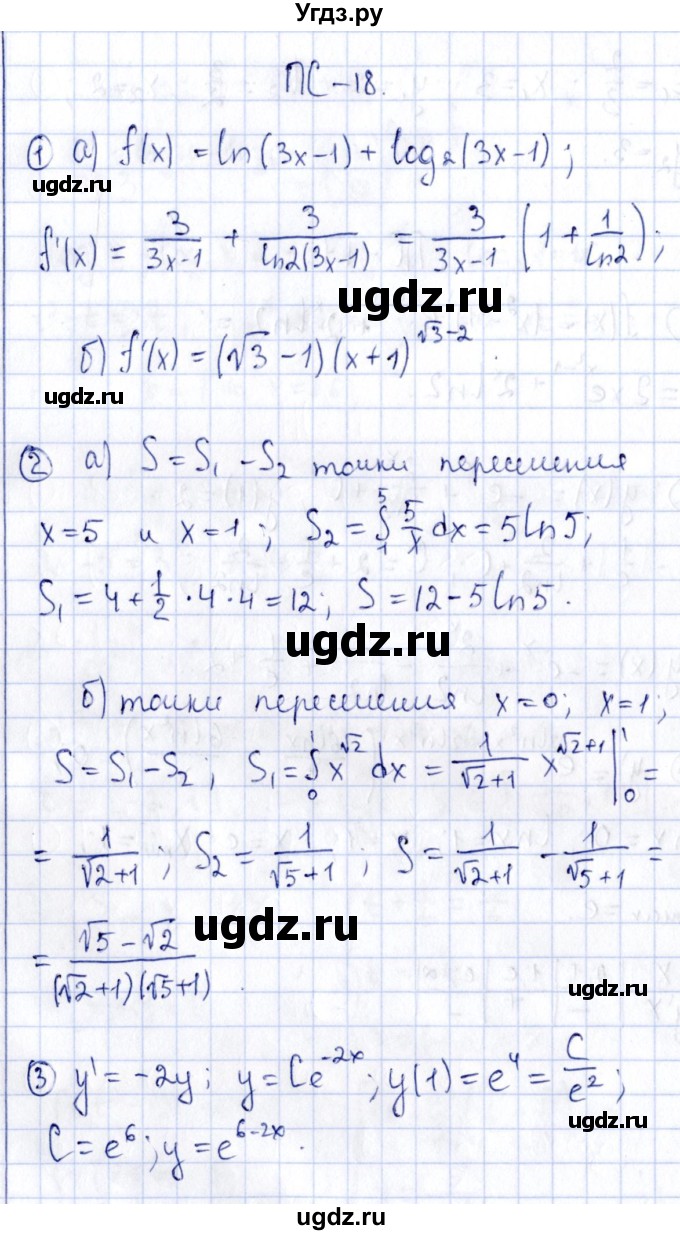 Угдз.ру
ПС-18.
① а) f(x) = ln(3x-1) + log₂(3x-1);
ugdz.ru
f'(x) = 3/(3x-1) + 3/(ln2(3x-1)) = 3/(3x-1) (1 + 1/ln2);
ugdz.ru
б) f'(x) = (√3 - 1)(x+1)^(√3-2)
ugdz.ru
② а) S = S₁ - S₂ точки пересечения
x=5 и x=1; S₂ = ∫₁⁵ 5/x dx = 5ln5;
S₁ = 4 + 1/2 · 4 · 4 = 12; S = 12 - 5ln5.
ugdz.ru
б) точки пересечения x=0; x=1;
S = S₁ - S₂; S₁ = ∫₀¹ x^√2 dx = 1/(√2+1) x^(√2+1) |₀¹ =
= 1/(√2+1); S₂ = 1/(√5+1); S = 1/(√2+1) - 1/(√5+1) =
ugdz.ru
= (√5 - √2)/((√2+1)(√5+1)).
ugdz.ru
③ y' = -2y; y = Ce^(-2x); y(1) = e⁴ = C/e²;
C = e⁶; y = e^(6-2x).
ugdz.ru
ugdz.ru